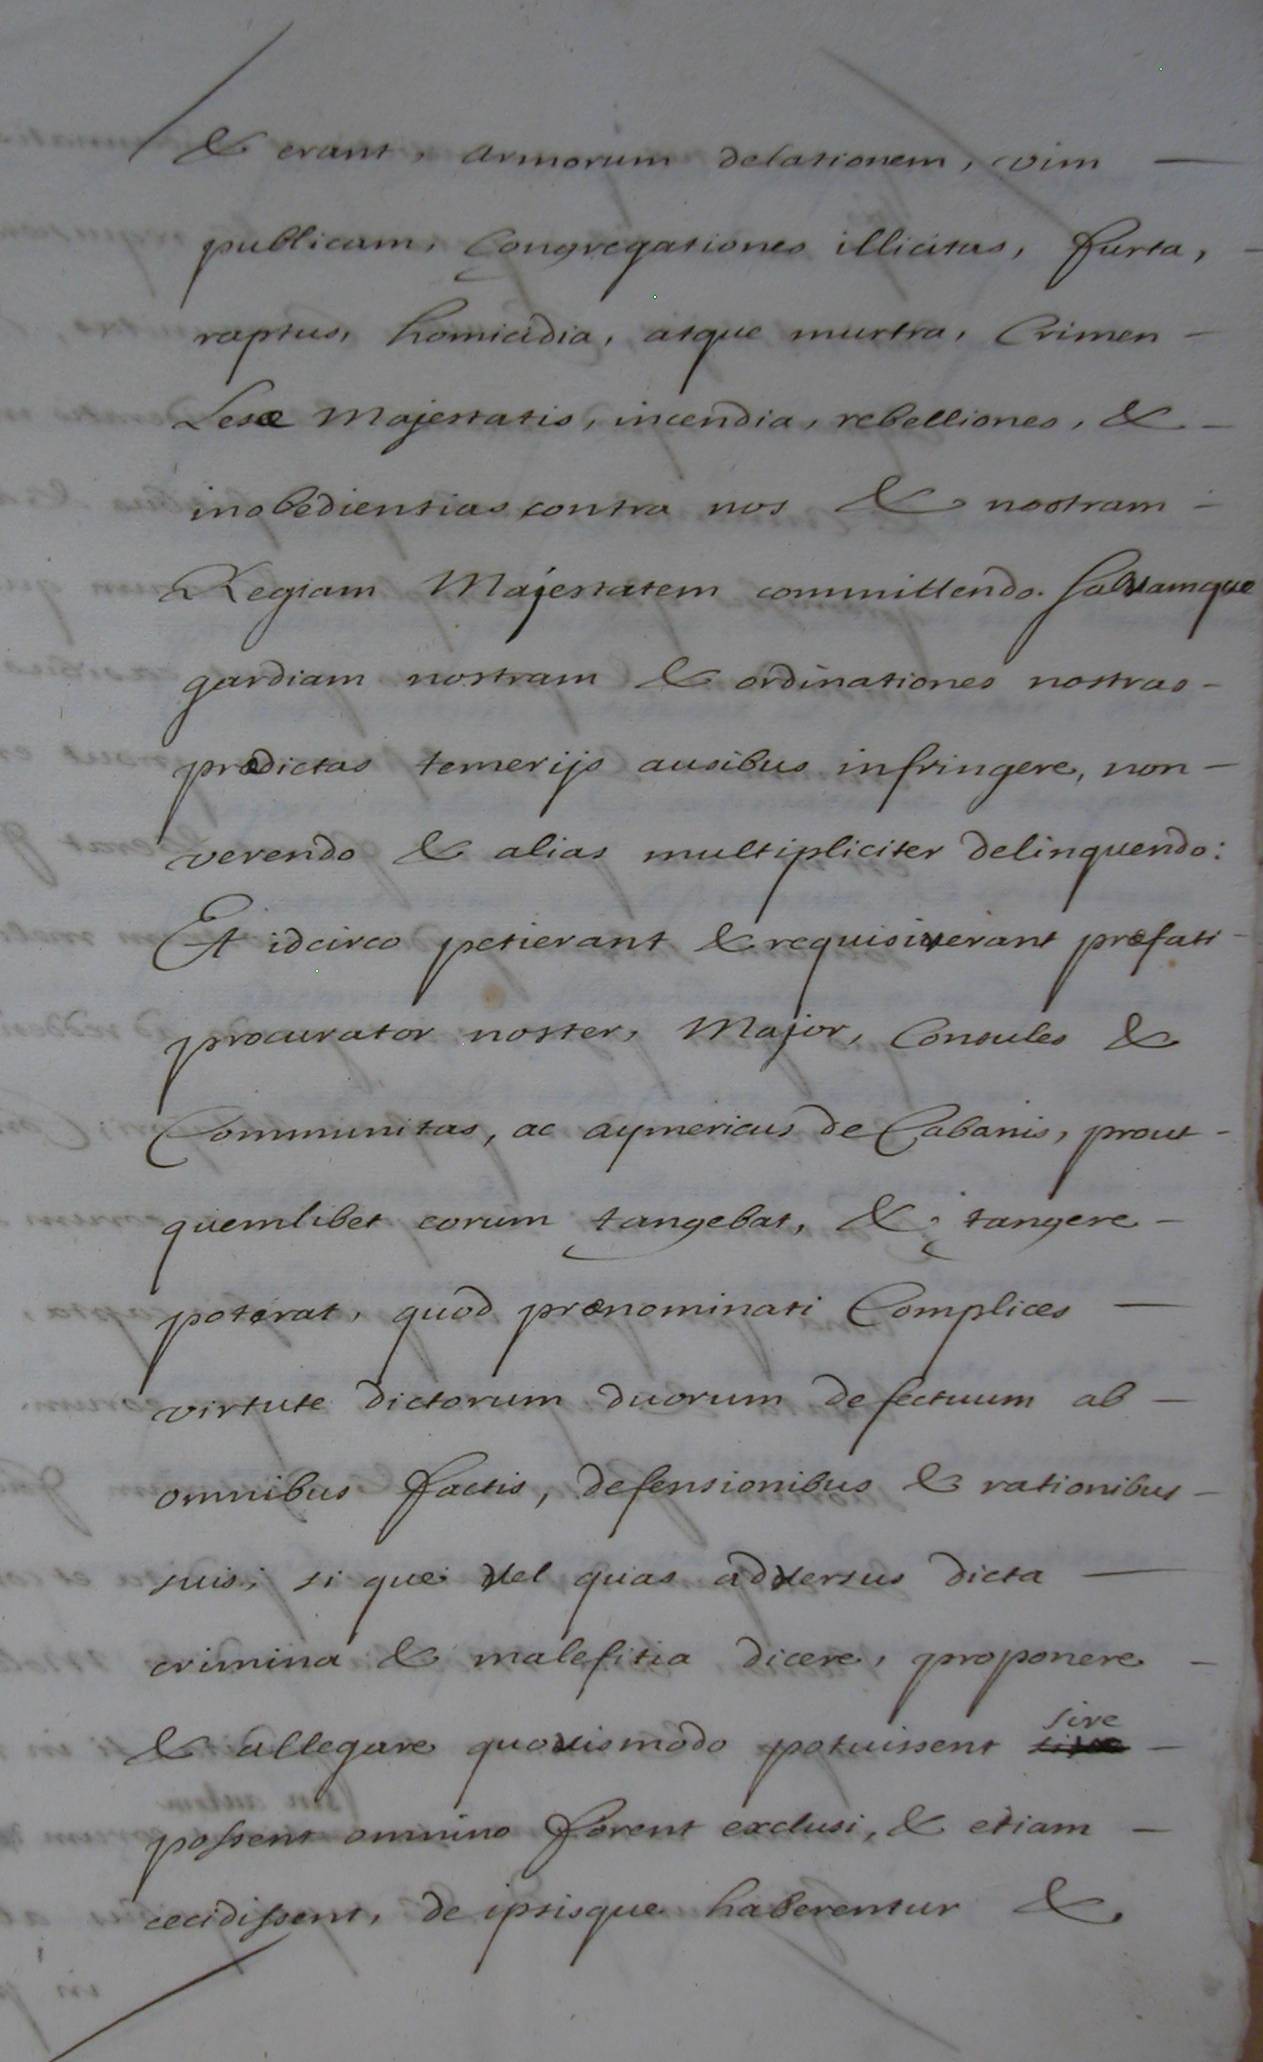 & erant, armorum delationem, vim —
publicam, Congregationes illicitas, furta, -
raptus, homicidia, atque murtra, Crimen -
Lesæ Majestatis, incendia, rebelliones, & -
inobedientias contra nos & nostram -
Regiam Majestatem committendo. salvamque
gardiam nostram & ordinationes nostras -
prædictas temerijs ausibus infringere, non -
verendo & alias multipliciter delinquendo:
Et idcirco petierant & requisiverant præfati -
procurator noster, Major, Consules &
Communitas, ac aymericus de Cabanis, prout -
quemlibet eorum tangebat, & tangere -
poterat, quod prænominati Complices —
virtute dictorum duorum defectuum ab —
omnibus factis, defensionibus & rationibus -
suis, si que vel quas adversus dicta —
crimina & malefitia dicere, proponere -
& allegare quovismodo potuissent sive -
possent omnino forent exclusi, & etiam -
cecidissent, de ipsisque haberentur &